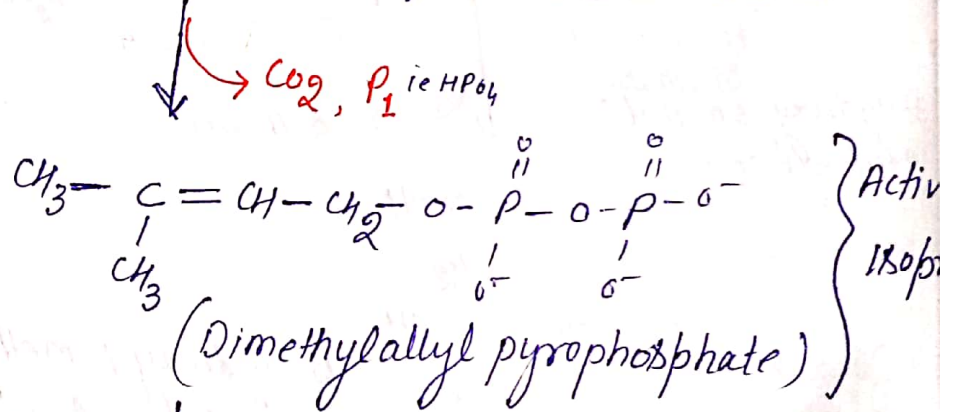 CO2, Pi ie HPO4
O O
|| ||
CH3 — C = CH — CH2 — O - P — O - P - O⁻
CH3 O⁻ O⁻
(Dimethylallyl pyrophosphate)
Activ
Isop